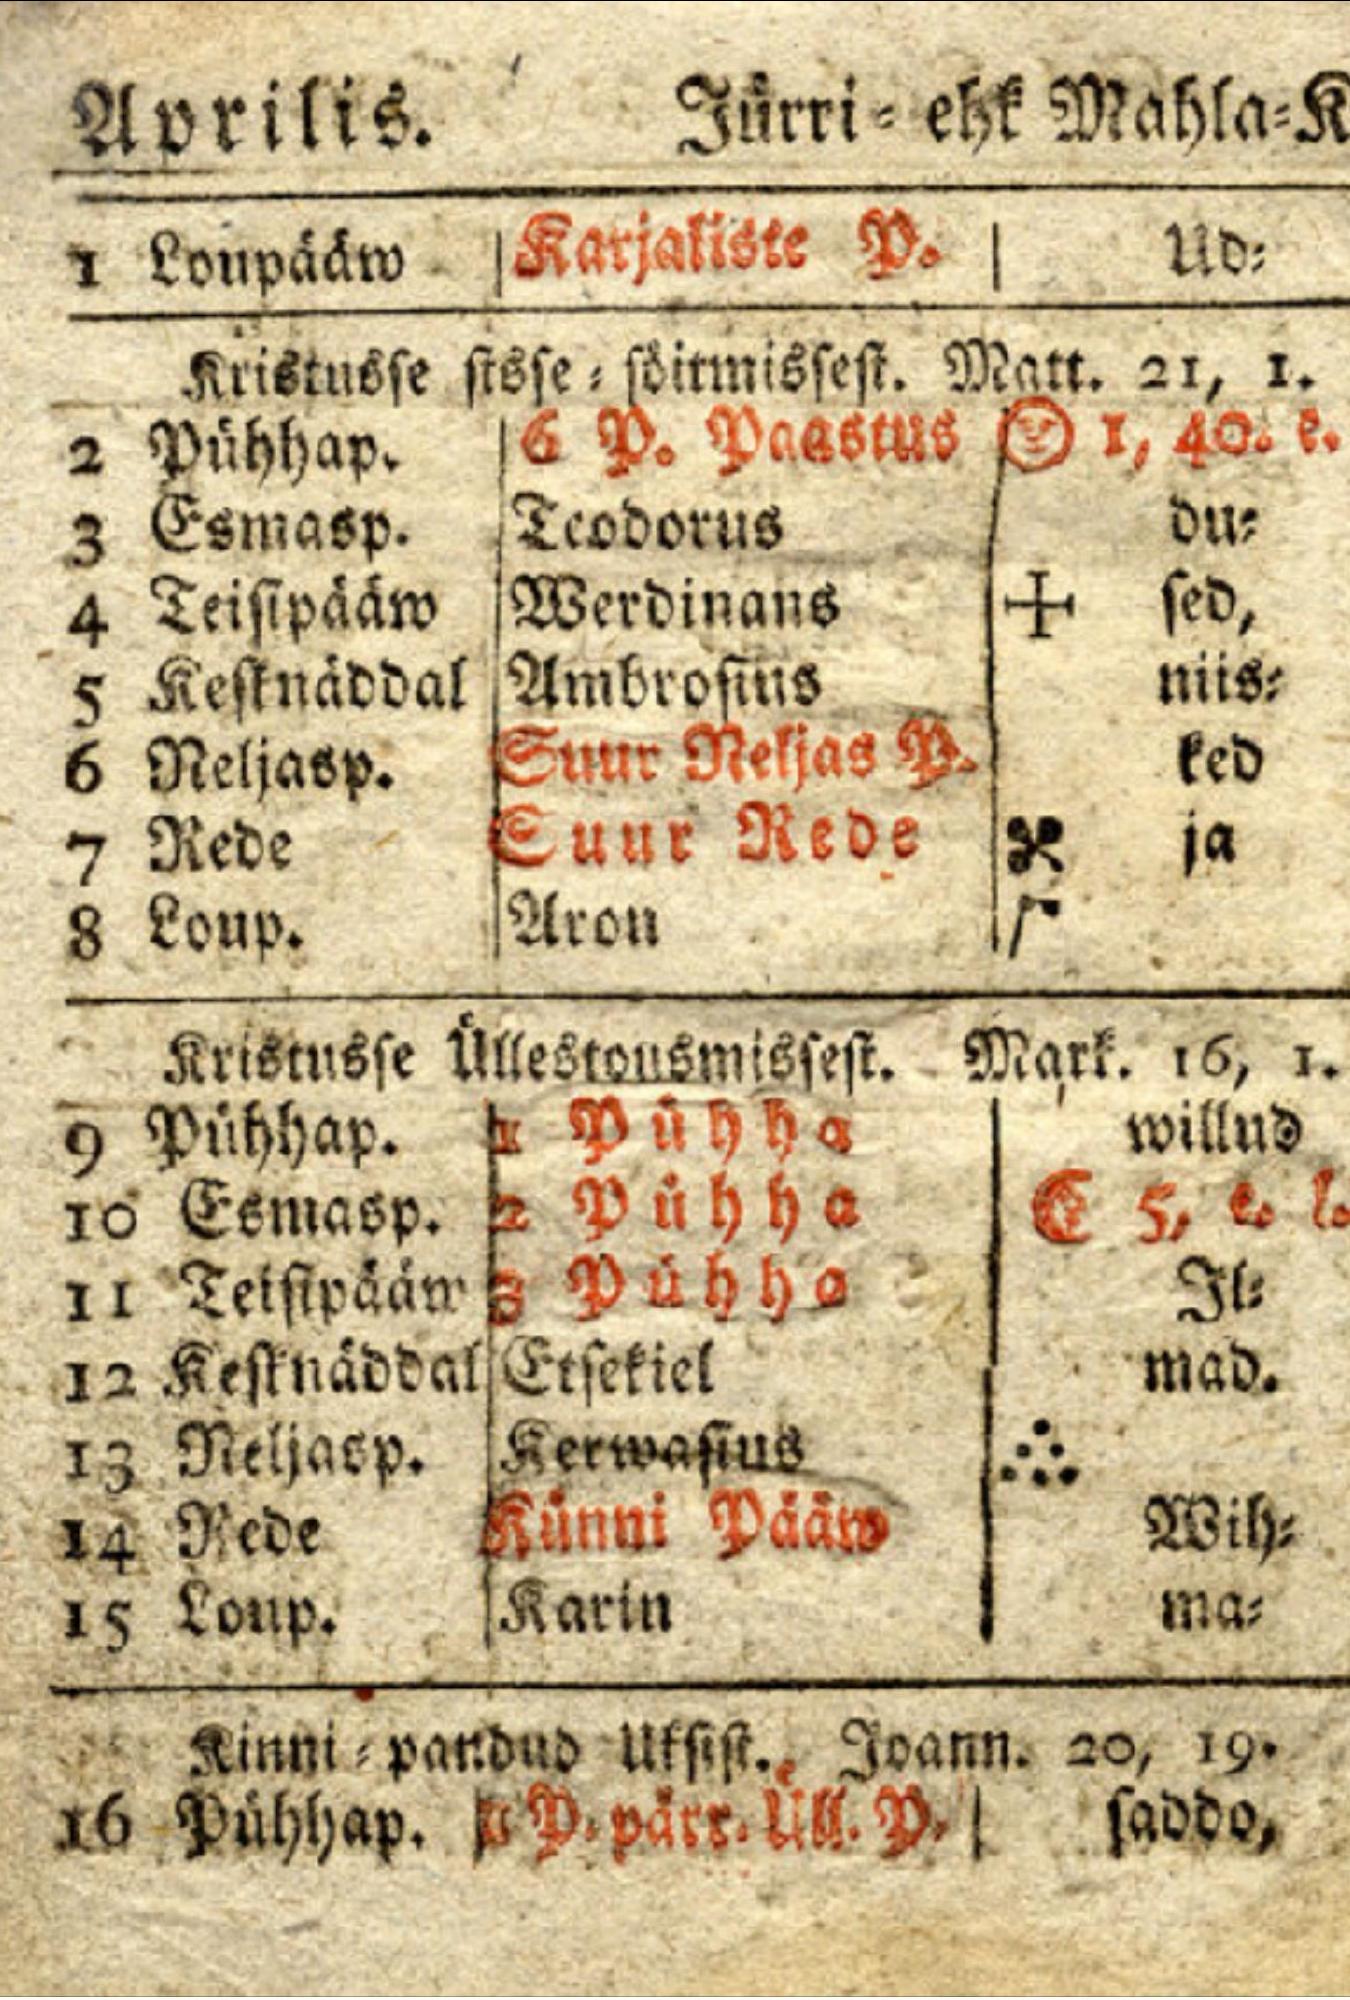 Aprilis. Jürri- ehk Mahla-K
1 Loupääw Karjaliste P. Ud-
Kristusse sisse-söitmissest. Matt. 21, 1.
2 Pühhap. 6 P. Paastus 1, 40. e.
3 Esmasp. Teodorus du-
4 Teisipääw Werdinans sed,
5 Kesknäddal Ambrosius niis-
6 Neljasp. Suur Neljas P. ked
7 Rede Suur Rede ja
8 Loup. Aron
Kristusse Üllestousmissest. Mark. 16, 1.
9 Pühhap. 1 Pühha willud
10 Esmasp. 2 Pühha 5, e. l.
11 Teisipääw 3 Pühha Il-
12 Kesknäddal Etsekiel mad.
13 Neljasp. Kerwasius
14 Rede Künni Pääw Wih-
15 Loup. Karin ma-
Kinni-pandud Uksist. Joann. 20, 19.
16 Pühhap. 1 P. pärr. Üll. P. saddo,